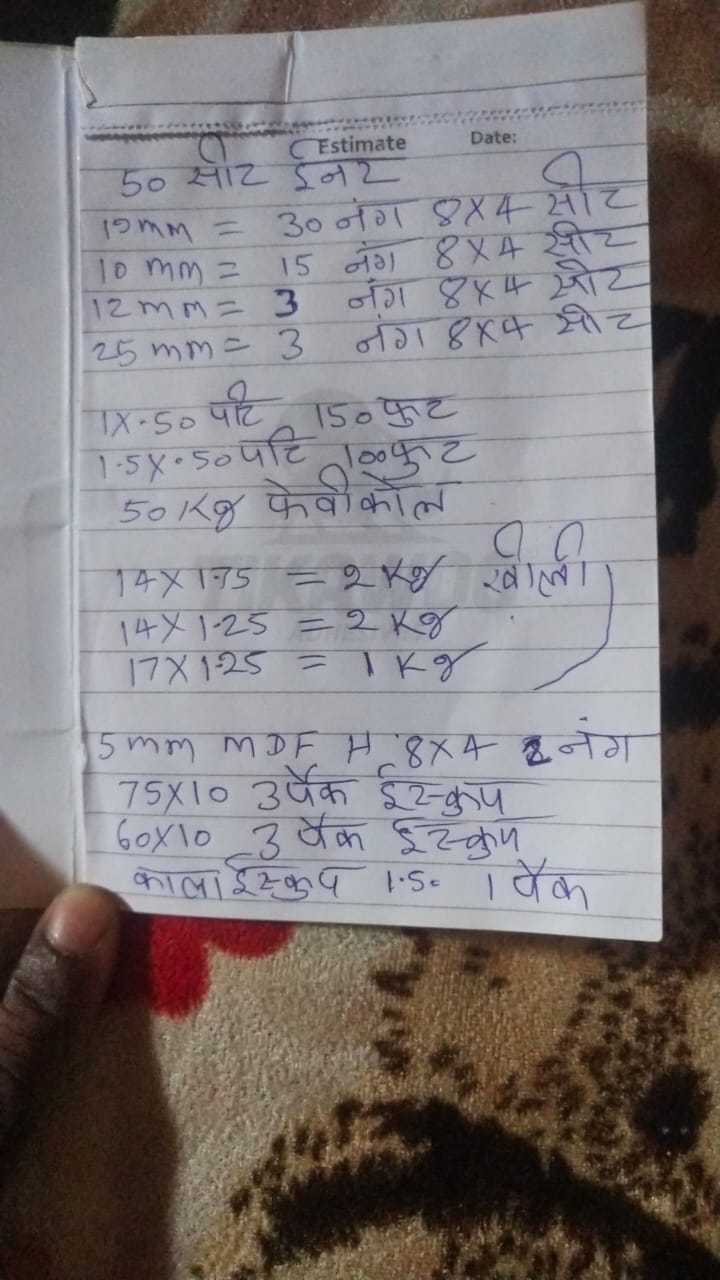 Estimate Date:
50 सीट ईनर
19mm = 30 नंग 8X4 सीट
10 mm = 15 नंग 8X4 सीट
12 mm = 3 नंग 8X4 सीट
25 mm = 3 नंग 8X4 सीट
1X.50 पटि 150 फुट
1.5X.50 पटि 100 फुट
50 Kg फेवीकोल
14X1.75 = 2 Kg खीली
14X1.25 = 2 Kg
17X1.25 = 1 Kg
5 mm MDF H 8X4 2 नंग
75X10 3 पैक ईस्कुप
60X10 3 पैक ईस्कुप
काला ईस्कुप 1.50 1 पैक